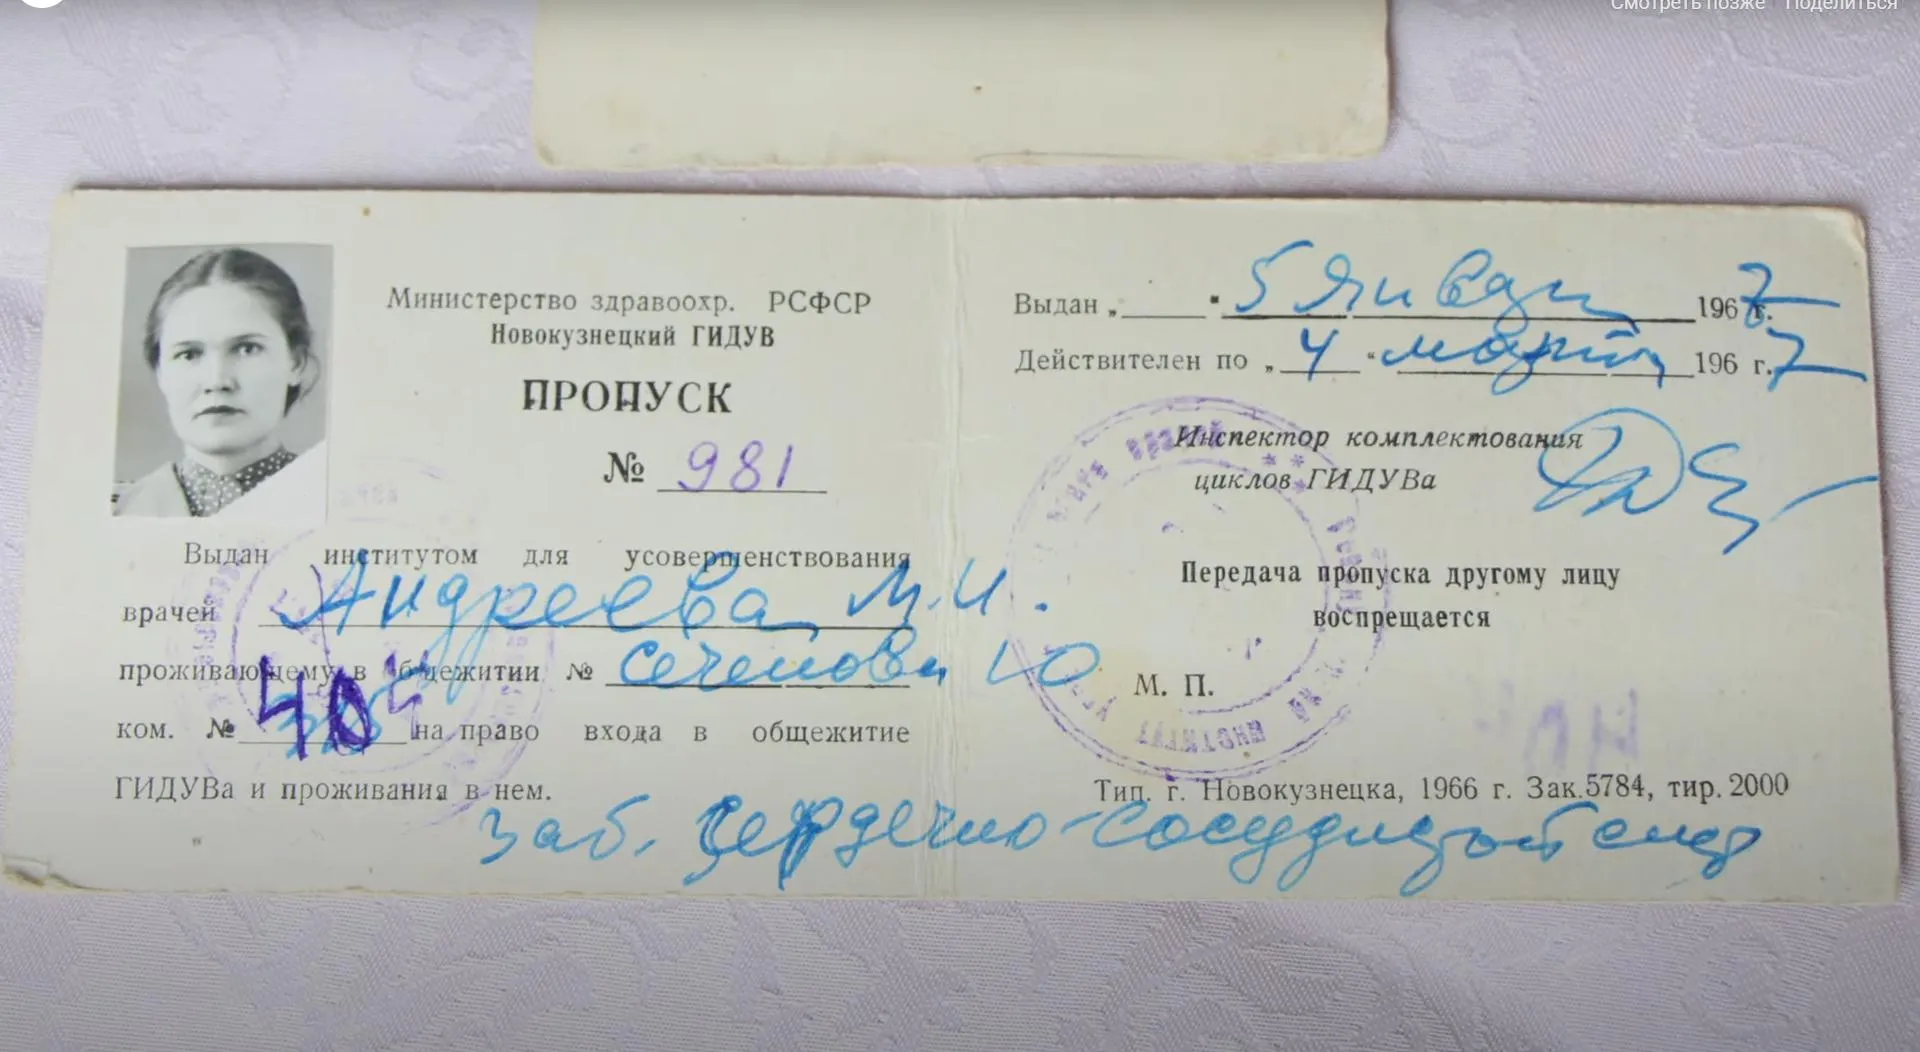 Смотреть позже Поделиться
Министерство здравоохр. РСФСР
Новокузнецкий ГИДУВ
ПРОПУСК
№ 981
Выдан институтом для усовершенствования
врачей Андреева М.И.
проживающему в общежитии № Сеченова 10
ком. № 404 на право входа в общежитие
ГИДУВа и проживания в нем.
заб. сердечно-сосудистой сист
Выдан „ " 5 Января 1967 г.
Действителен по „ 4 " марта 196 г. 7
Инспектор комплектования
циклов ГИДУВа
Передача пропуска другому лицу
воспрещается
М. П.
Тип. г. Новокузнецка, 1966 г. Зак. 5784, тир. 2000